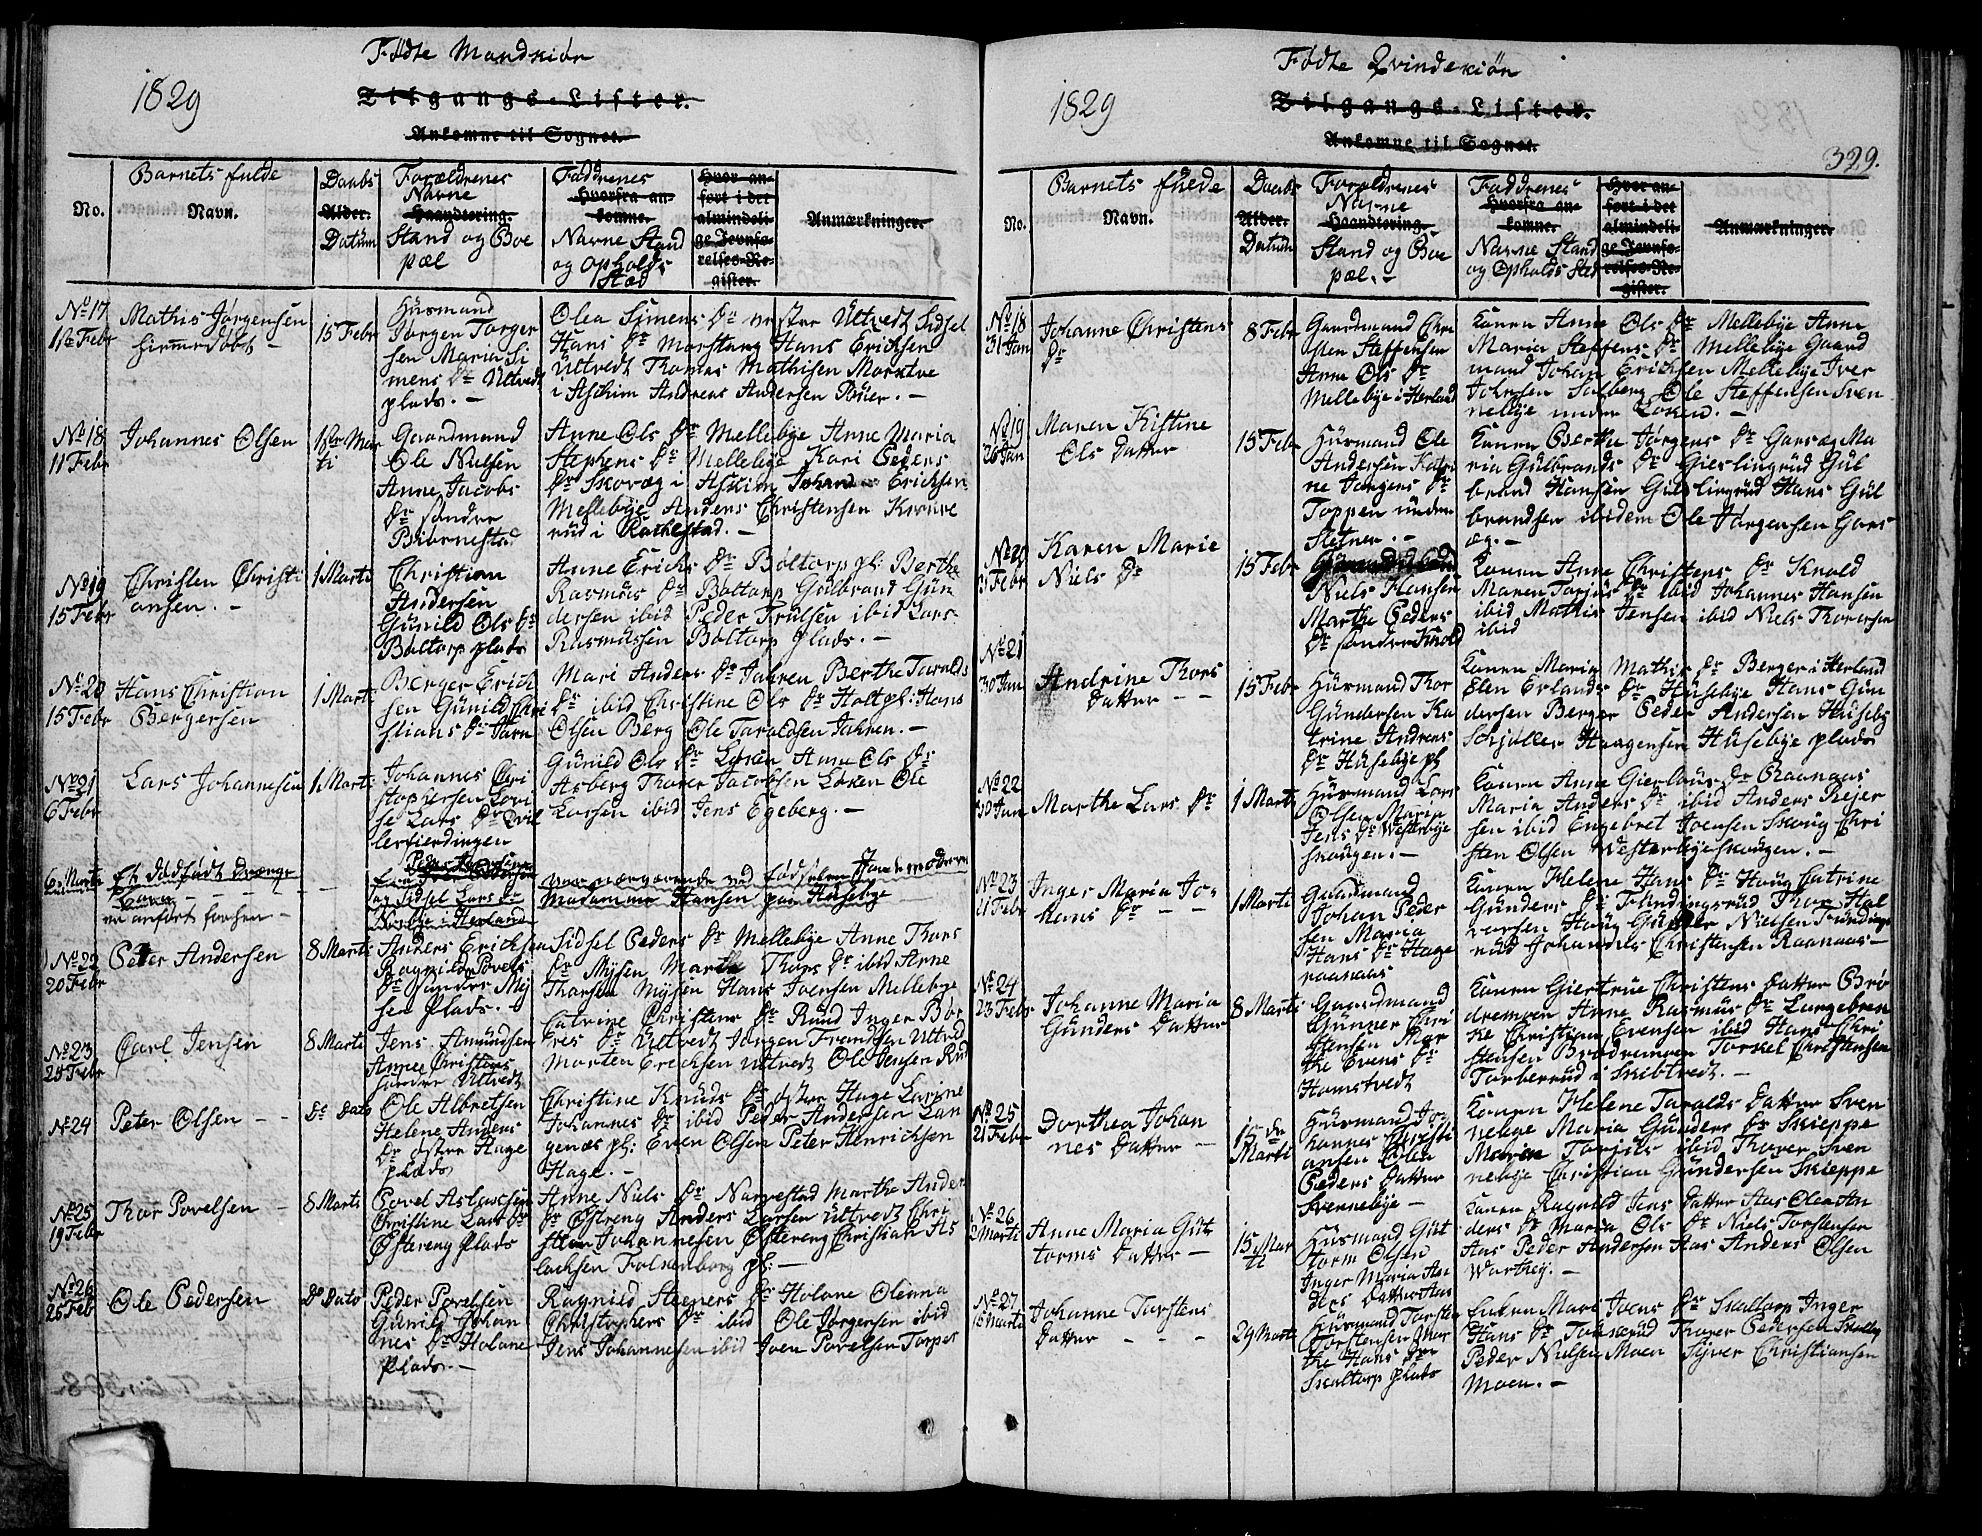 Fødte Mandkiøn
1829
Tilgangs-Lister.
Ankomne til Sognet.
No.
Barnets fulde
Navn.
Daabs
Alder.
Datum
Forældrenes
Navne
Haandtering.
Stand og Boe
pæl
Faddrenes
Hvorfra an-
komne.
Navne Stand
og Opholds
Stæd
Hvor an-
ført i det
almindeli-
ge Jevnfø-
relses-Re-
gister.
Anmærkninger.
No 17
Febr
Mathis Jørgensen
hiemmedøbt -
15 Febr
Huusmand
Jørgen Torger
sen Maria Si
mens Dr Ultvedt
plads. -
Olea Simens Dr vestre Ultvedt Sidsel
Hans Dr Morstang Hans Erichsen
Ultvedt Thomas Mathisen
i Aschim Andreas Andersen Buer. -
No 18
11 Febr
Johannes Olsen
1ste Mar
ti
Gaardmand
Ole Nielsen
Anne Jacobs
Dr søndre
Biørnestad
Anne Ols Dr Mellebye Anne Maria
Stephens Dr Mellebye Kari Peders
Dr Skovæg i Askim Johan Erichsen
Mellebye Anders Christensen
rud i Rakkestad. -
No 19
15 Febr
Christen Christi
ansen. -
1 Marti
Christian
Andersen
Gunild Ols Dr
Boltorp plads
Anne Erichs Dr Boltorp pl: Berthe
Rasmus Dr Boltorp Gulbrand Gun
dersen ibid Peder Trulsen ibid Lars
Rasmussen Boltorp plads. -
No 20
15 Febr
Hans Christian
Bergersen
1 Marti
Berger Erich
sen Gunild Chri
stians Dr
Mari Anders Dr Jahren Berthe Taralds
Dr ibid Christine Ols Dr Holt pl: Hans
Olsen Berg Ole Taraldsen Jahren. -
No 21
6 Febr
Lars Johannesen
1 Marti
Johannes Chri
stophersen Lovi
se Lars Dr
lerfierdingen
Gunild Ols Dr Løken Anne Ols Dr
Asberg Thorer Jacobsen Løken Ole
Larsen ibid Jens Egeberg. -
Marti
Et dødfødt Drænge
Barn -
anført forhen -
Peder
og Sidsel Lars Dr
Norbye i Herland
var nærværende ved fødselen Jordemoderen
Madamme Hansen paa Huseby
No 22
20 Febr
Peter Andersen
8 Marti
Anders Erichsen
Ragnild Povels
Dr søndre My
sen plads.
Sidsel Peders Dr Mellebye Anne Thors
Dr Mysen Marthe Thors Dr ibid Arne
Thorsen Mysen Hans Joensen Mellebye
No 23
25 Febr
Carl Jensen
8 Marti
Jens Amundsen
Anne Christens
søndre Ultvedt
Catrine Christens Dr Rund Inger Bør
res Dr Ultvedt Jørgen Frandsen Ultved
Morten Erichsen Ultvedt Ole Jensen Rud
No 24
Peter Olsen - -
Do Dato
Ole Albretsen
Helene Anders
Dr østre Hage
plads
Christine Knuds Dr østre Hage Larine
Johannes Dr ibid Peder Andersen Lan
genæs pl: Even Olsen Peter Henrichsen
Hage. -
No 25
19 Febr
Thor Povelsen -
8 Marti
Povel Aslachsen
Christine Lars Dr
Østereng plads
Anne Niels Dr Narvestad Marthe Anders
Dr Østreng Anders Larsen Ultvedt Chri
sten Johannesen Østereng Christian As
lachsen Falkenborg pl: -
No 26
25 Febr
Ole Pedersen
Do Dato
Peder Povelsen
Gunild Johan
nes Dr Holene
plads. -
Ragnild Steeners Dr Holane Olenna
Christophers Dr ibid Ole Jørgensen ibid
Jens Johannesen ibid Joen Povelsen Torper
Fødte Qvindekiøn
1829
Tilgangs-Lister.
Ankomne til Sognet.
329.
No.
Barnets fulde
Navn.
Daabs
Alder.
Datum
Forældrenes
Navne
Haandtering.
Stand og Boe
pæl. -
Faddrenes
Hvorfra an-
komne.
Navne Stand
og Opholds Sted
Hvor an-
ført i det
almindeli-
ge Jevnfø-
relses-Re-
gister.
Anmærkninger.
No 18
31 Jan
Johanne Christens
Dr
8 Febr
Gaardmand Chri
sten Steffensen
Anne Ols Dr
Mellebye i Herland
Konen Anne Ols Dr Mellebye Anne
Maria Steffens Dr Mellebye Gaard
mand Johan Erichsen Mellebye Iver
Johnsen Solberg Ole Steffensen Sven
nebye under Løken. -
No 19
26 Jan
Maren Kistine
Ols Datter
15 Febr
Huusmand Ole
Andersen Katri
ne Jørgens Dr
Toppen under
Sletner. -
Konen Berthe Jørgens Dr Garsæg Ma
ria Gulbrands Dr Gieslingrud Gul
brand Hansen Gislingrud Hans Gul
brandsen ibidem Ole Jørgensen Gars
æg. -
No 20
Febr
Karen Marie
Niels Dr
15 Febr
Niels Hansen
Marthe Peders
Dr søndre Knold
Konen Anne Christens Dr Knold
Maren Torjus Dr ibid Johannes Hansen
ibid Mathis Jensen ibid Niels Thorersen
ibid
No 21
30 Jan
Andrine Thors
Datter - -
15 Febr
Huusmand Thor
Gundersen Ka
trine Andreas
Dr Husebye pl
Konen Maria Mathis Dr Berger i Herland
Elen Erlands Dr Husebye Hans Gun
dersen Berger Peder Andersen Husebye
Schjøller Haagensen Husebye plads
No 22
30 Jan
Marthe Lars Dr
1 Marti
Huusmand Lars
Olsen Maria
Jens Dr Westerbye
skougen. -
Konen Anne Gierlaus Dr Raanaas
Maria Anders Dr ibid Anders Reier
sen ibid Engebret Joensen Skoug Chri
sten Olsen Westerbyeskougen. -
No 23
21 Febr
Inger Maria Jo-
hans Dr - -
1 Marti
Gaardmand
Johan Peder
sen Maria
Hans Dr Hage
raanaas
Konen Helene Hans Dr Haug Catrine
Gunders Dr Fundingsrud Thor Hal
vorsen Haug Gunder Nielsen Fundings
rud Johannes Christensen Raanaas -
No 24
23 Febr
Johanne Maria
Gunders Datter
8 Marti
Gaardmand
Gunner Chri
stensen Mar
the Evens Dr
Homstvedt
Konen Giertrue Christens Datter Brø
dremoen Anne Rasmus Dr Langebrek
ke Christian Evensen ibid Hans Chri
stensen Brødremoen Torkel Christensen
Torberrud i Skibtvedt. -
No 25
21 Febr
Dorthea Johan
nes Datter -
15 de
Marti
Huusmand Jo-
hannes Christi
ansen Elen
Peders Datter
Svennebye -
Konen Helene Taralds Datter Sven
nebye Maria Gunders Dr Skieppe
Maria Torjils ibid Thorer Sven
nebye Christian Gundersen Skieppe
No 26
2 Marti
Anne Maria Gut
torms Datter -
15 Mar
ti
Huusmand Gut
torm Olsen
Inger Maria An
ders Datter Aas
Konen Ragnild Jens Datter Aas Olea An
ders Dr Maria Ols Dr Niels Torstensen
Aas Peder Andersen Aas Anders Olsen
Warhey. -
No 27
15 Marti
Johanne Torstens
Datter - - -
29 Marti
Huusmand Torsten
Torstensen Mar
the Hans Dr
Skaltorp plads
Enken Mari Joens Dr Skaltorp Inger
Hans Dr Tosserud Thorer Pedersen
Peder Nielsen Moen Syver Christiansen
Moen. -